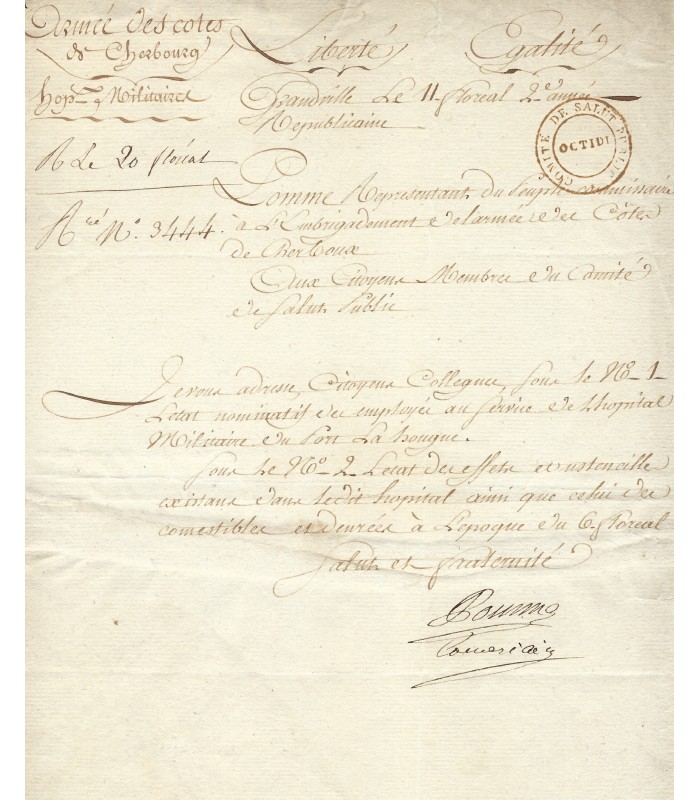 Armée des cotes
de Cherbourg
hop.^aux Militaires
Liberté Egalité
Grandville Le 11 floréal 2.e année
Républicaine
COMITÉ DE SALUT PUBLIC
OCTIDI
R Le 20 floréal
R.^cé N.º 3444.
Pomme Représentant du Peuple
à L'Embrigadement de l'armée des Côtes
de Cherboux
Aux Citoyens Membres du Comité
de Salut Public
Je vous adresse, Citoyens Collegues, sous le N.º 1
L'état nominatif des employés au Service de L'hopital
Militaire du Port La hougue.
Sous le N.º 2 L'état des effets et ustencille
existans dans ledit hopital ainsi que celui des
comestibles et denrées à L'epoque du 6 floreal
Salut et fraternité
Pomme